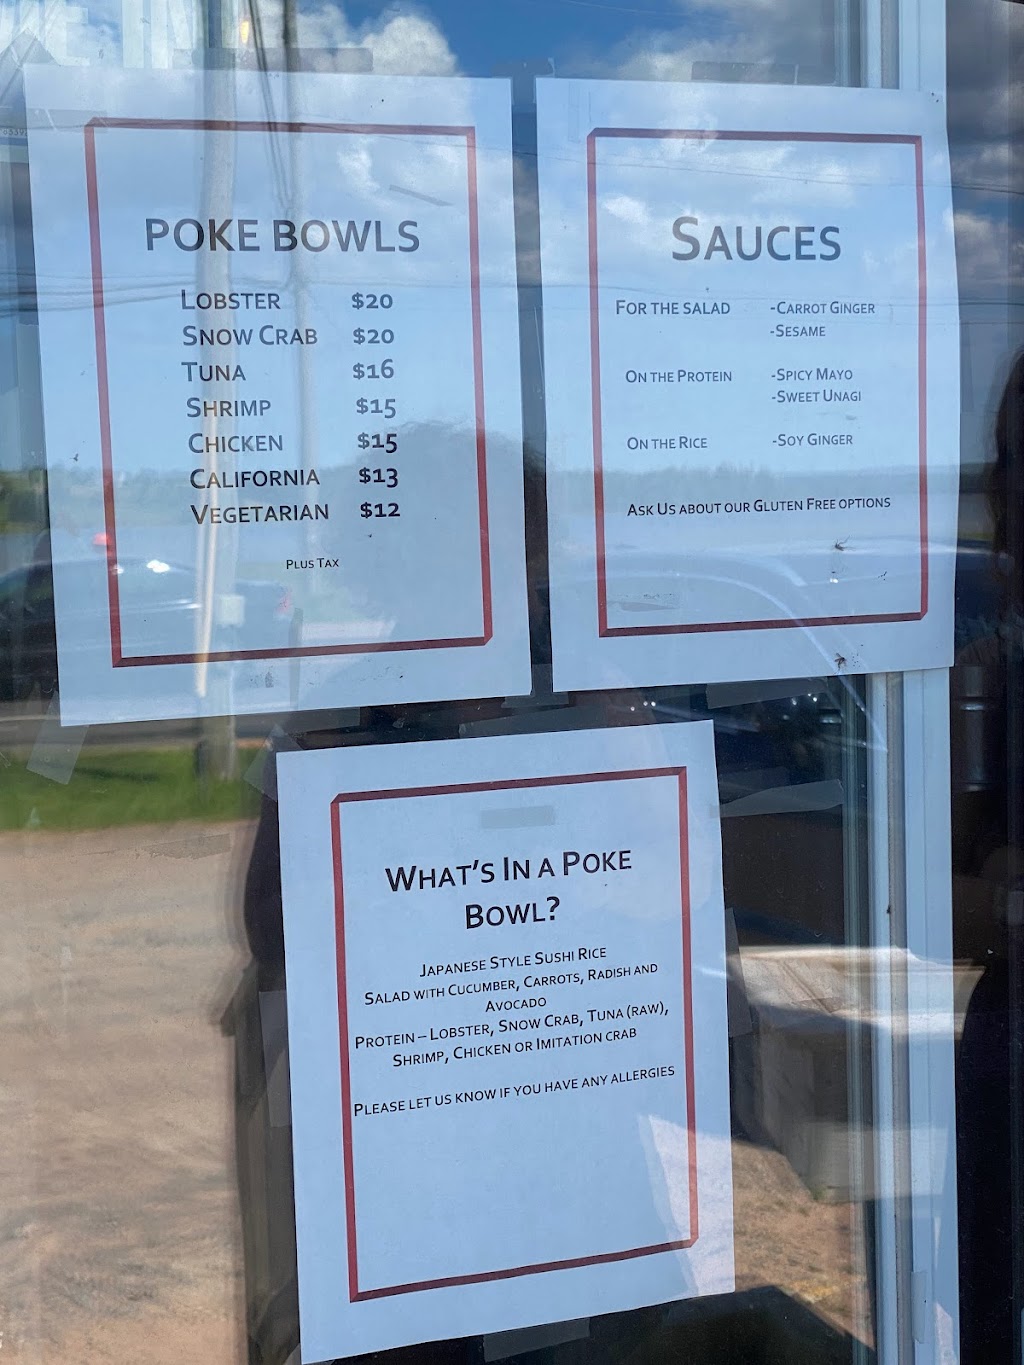 POKE BOWLS
LOBSTER $20
SNOW CRAB $20
TUNA $16
SHRIMP $15
CHICKEN $15
CALIFORNIA $13
VEGETARIAN $12
PLUS TAX
SAUCES
FOR THE SALAD -CARROT GINGER
-SESAME
ON THE PROTEIN -SPICY MAYO
-SWEET UNAGI
ON THE RICE -SOY GINGER
ASK US ABOUT OUR GLUTEN FREE OPTIONS
WHAT'S IN A POKE
BOWL?
JAPANESE STYLE SUSHI RICE
SALAD WITH CUCUMBER, CARROTS, RADISH AND
AVOCADO
PROTEIN – LOBSTER, SNOW CRAB, TUNA (RAW),
SHRIMP, CHICKEN OR IMITATION CRAB
PLEASE LET US KNOW IF YOU HAVE ANY ALLERGIES